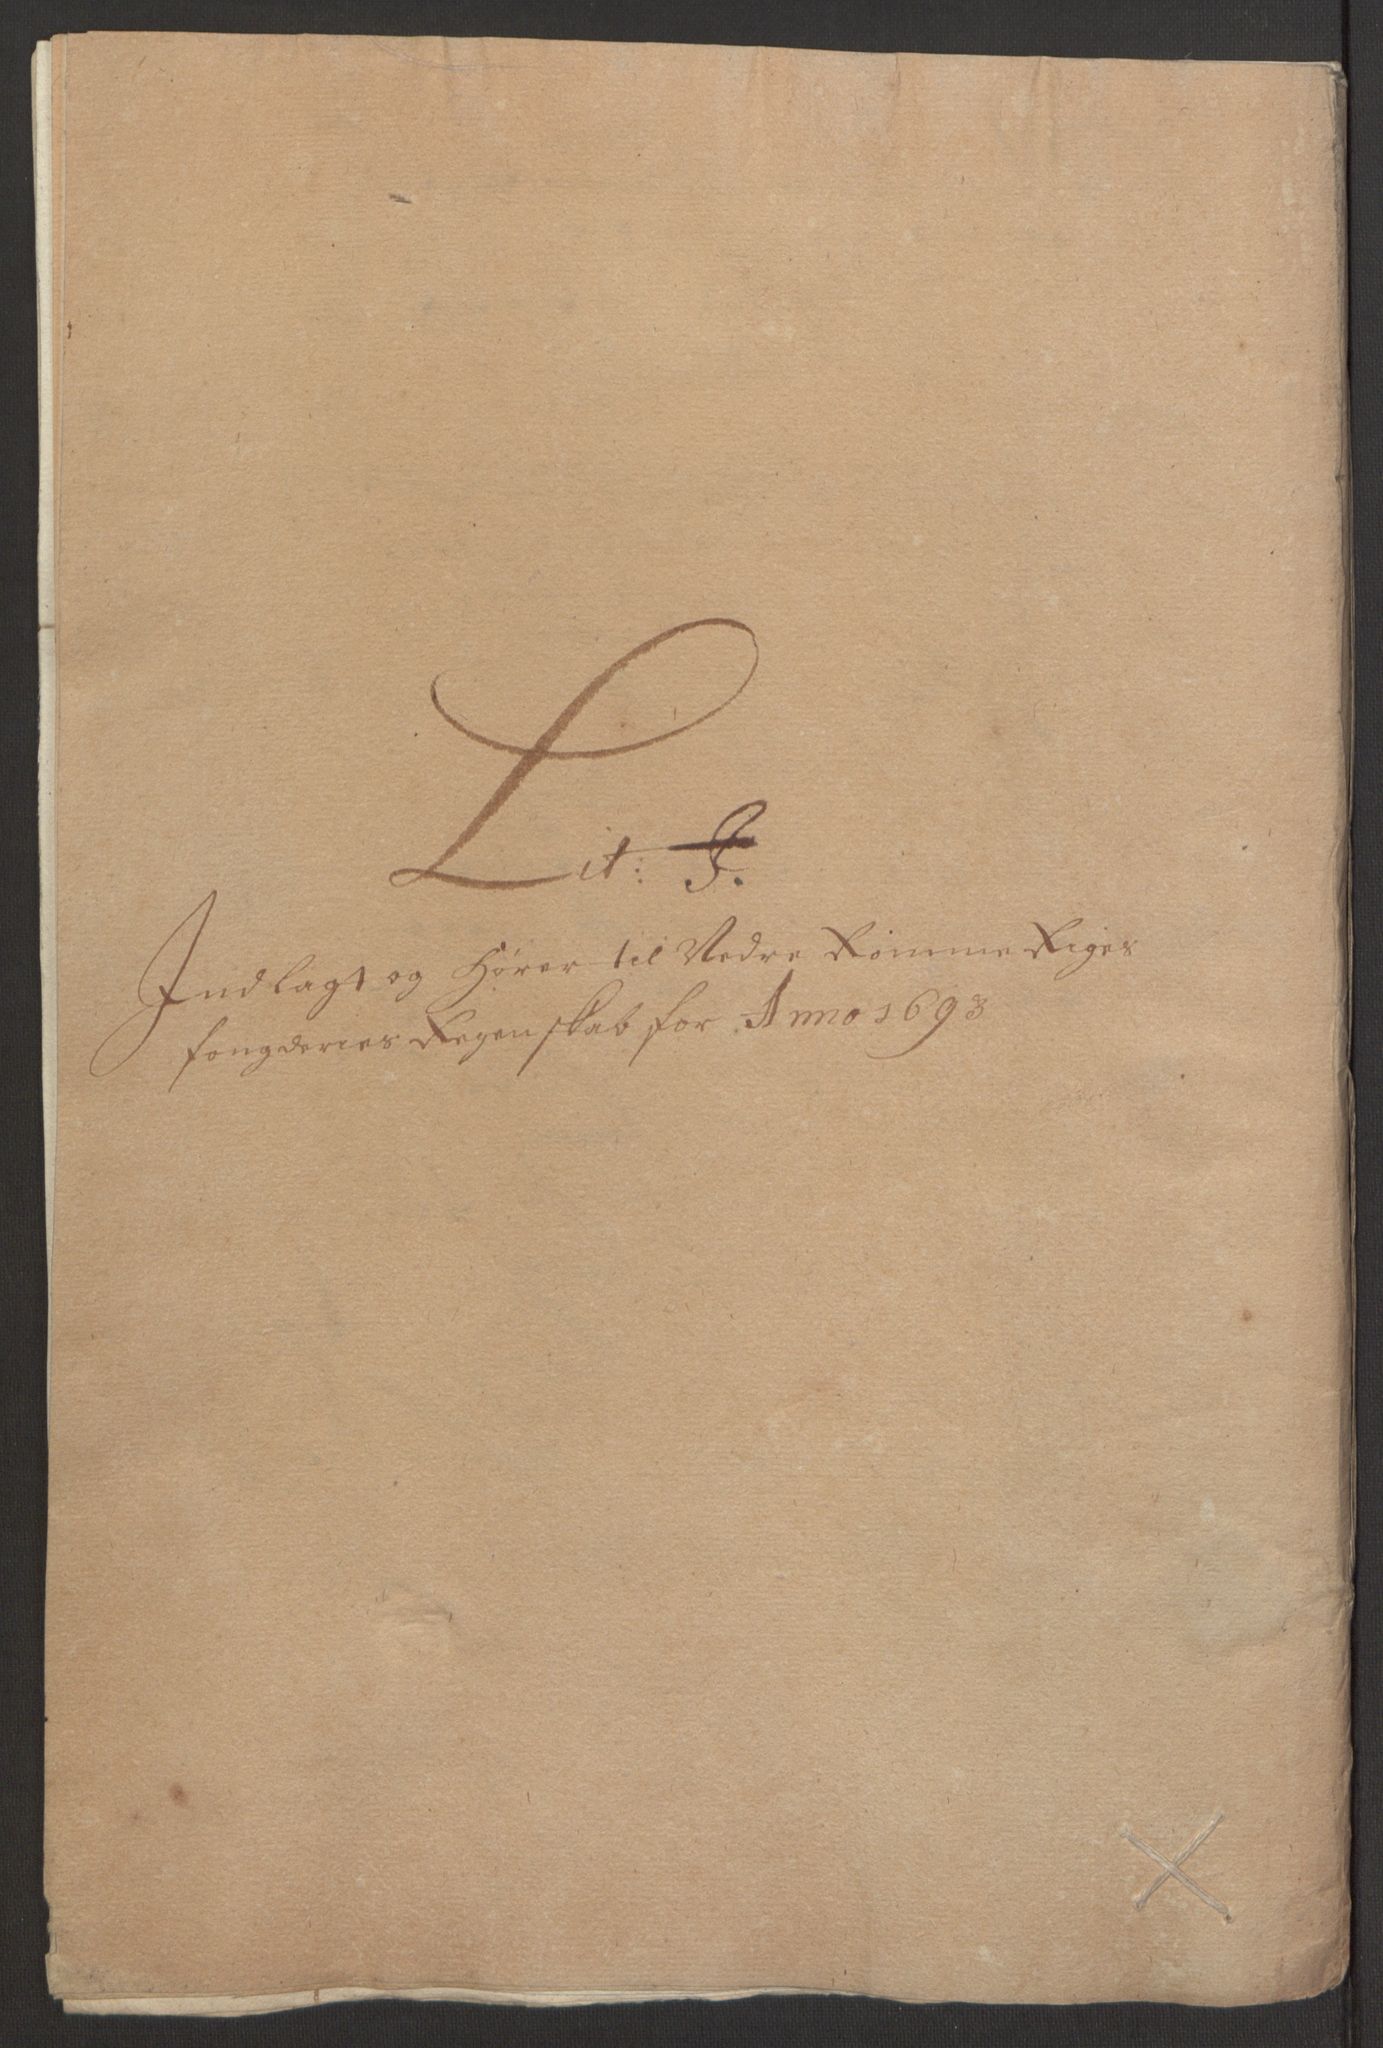 Lit: F.
Indlagt og Hører til Nedre Romme Riges
fougderies Regenskab for Anno 1693